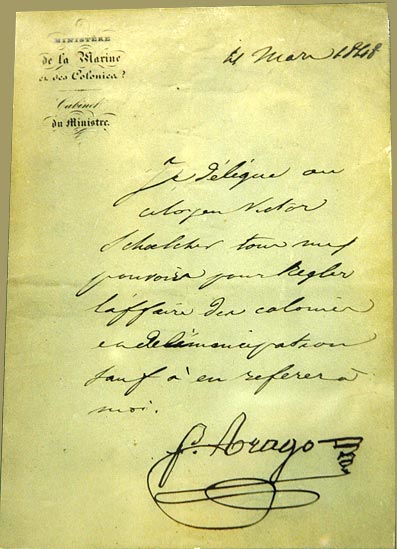 MINISTÈRE
de la Marine
et des Colonies
Cabinet
du Ministre.
4 Mars 1848
Je délègue au
citoyen Victor
Schœlcher tous mes
pouvoirs pour régler
l'affaire des colonies
et de l'émancipation
sauf à en referer à
moi.
F. Arago